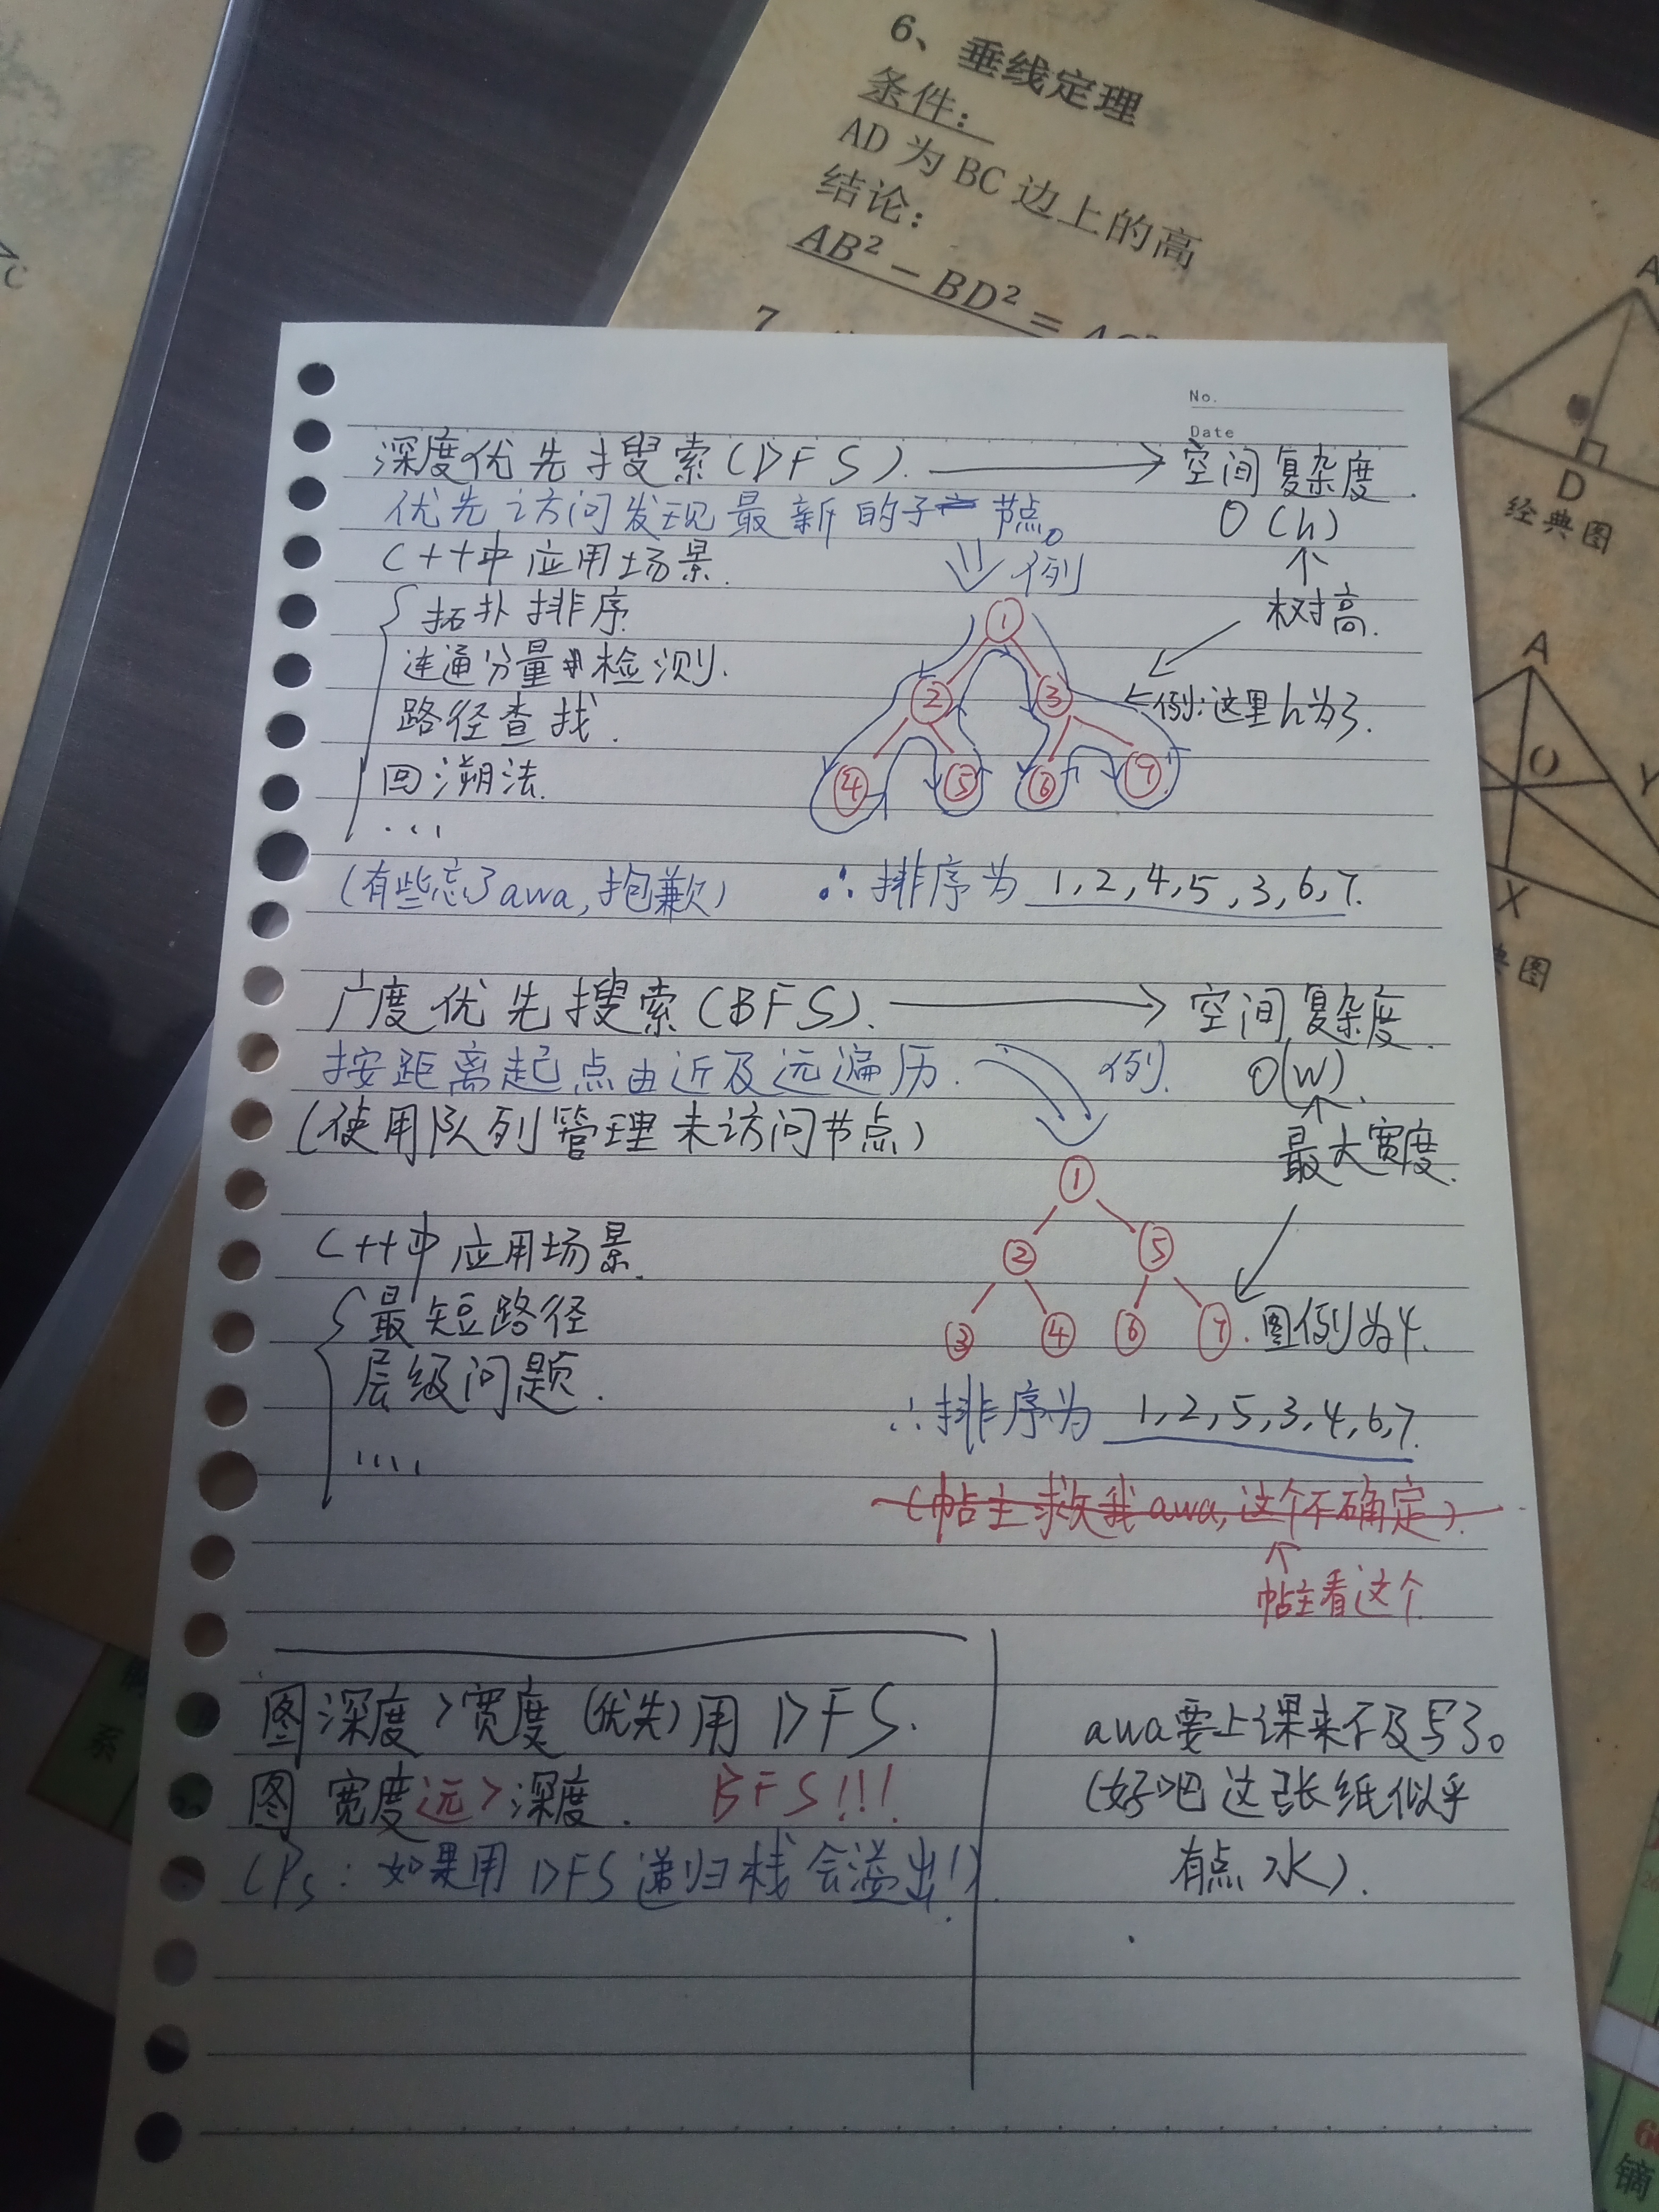 6、垂线定理
条件：
AD 为 BC 边上的高
结论：
AB² − BD² =
7
A
D
经典图
A
O
Y
X
图
C
No.
Date
深度优先搜索(DFS). → 空间复杂度.
优先访问发现最新的子节点。 O(h)
C++中应用场景. 例 ↑
树高.
拓扑排序.
连通分量检测.
路径查找.
回溯法.
...
1
2 3 ←例:这里h为3.
4 5 6 7
(有些忘了awa,抱歉) ∴排序为 1,2,4,5,3,6,7.
广度优先搜索(BFS). → 空间复杂度.
按距离起点由近及远遍历. 例. O(W).
(使用队列管理未访问节点) ↑
最大宽度.
C++中应用场景.
最短路径
层级问题.
....
1
2 5
3 4 6 7. 图例为4.
∴排序为 1,2,5,3,4,6,7.
(帖主救我awa,这个不确定).
↑
帖主看这个
图深度>宽度(优先)用DFS.
图宽度远>深度. BFS!!!
(Ps:如果用DFS递归栈会溢出!).
awa要上课来不及写了。
(好吧这张纸似乎
有点水).
系
镝